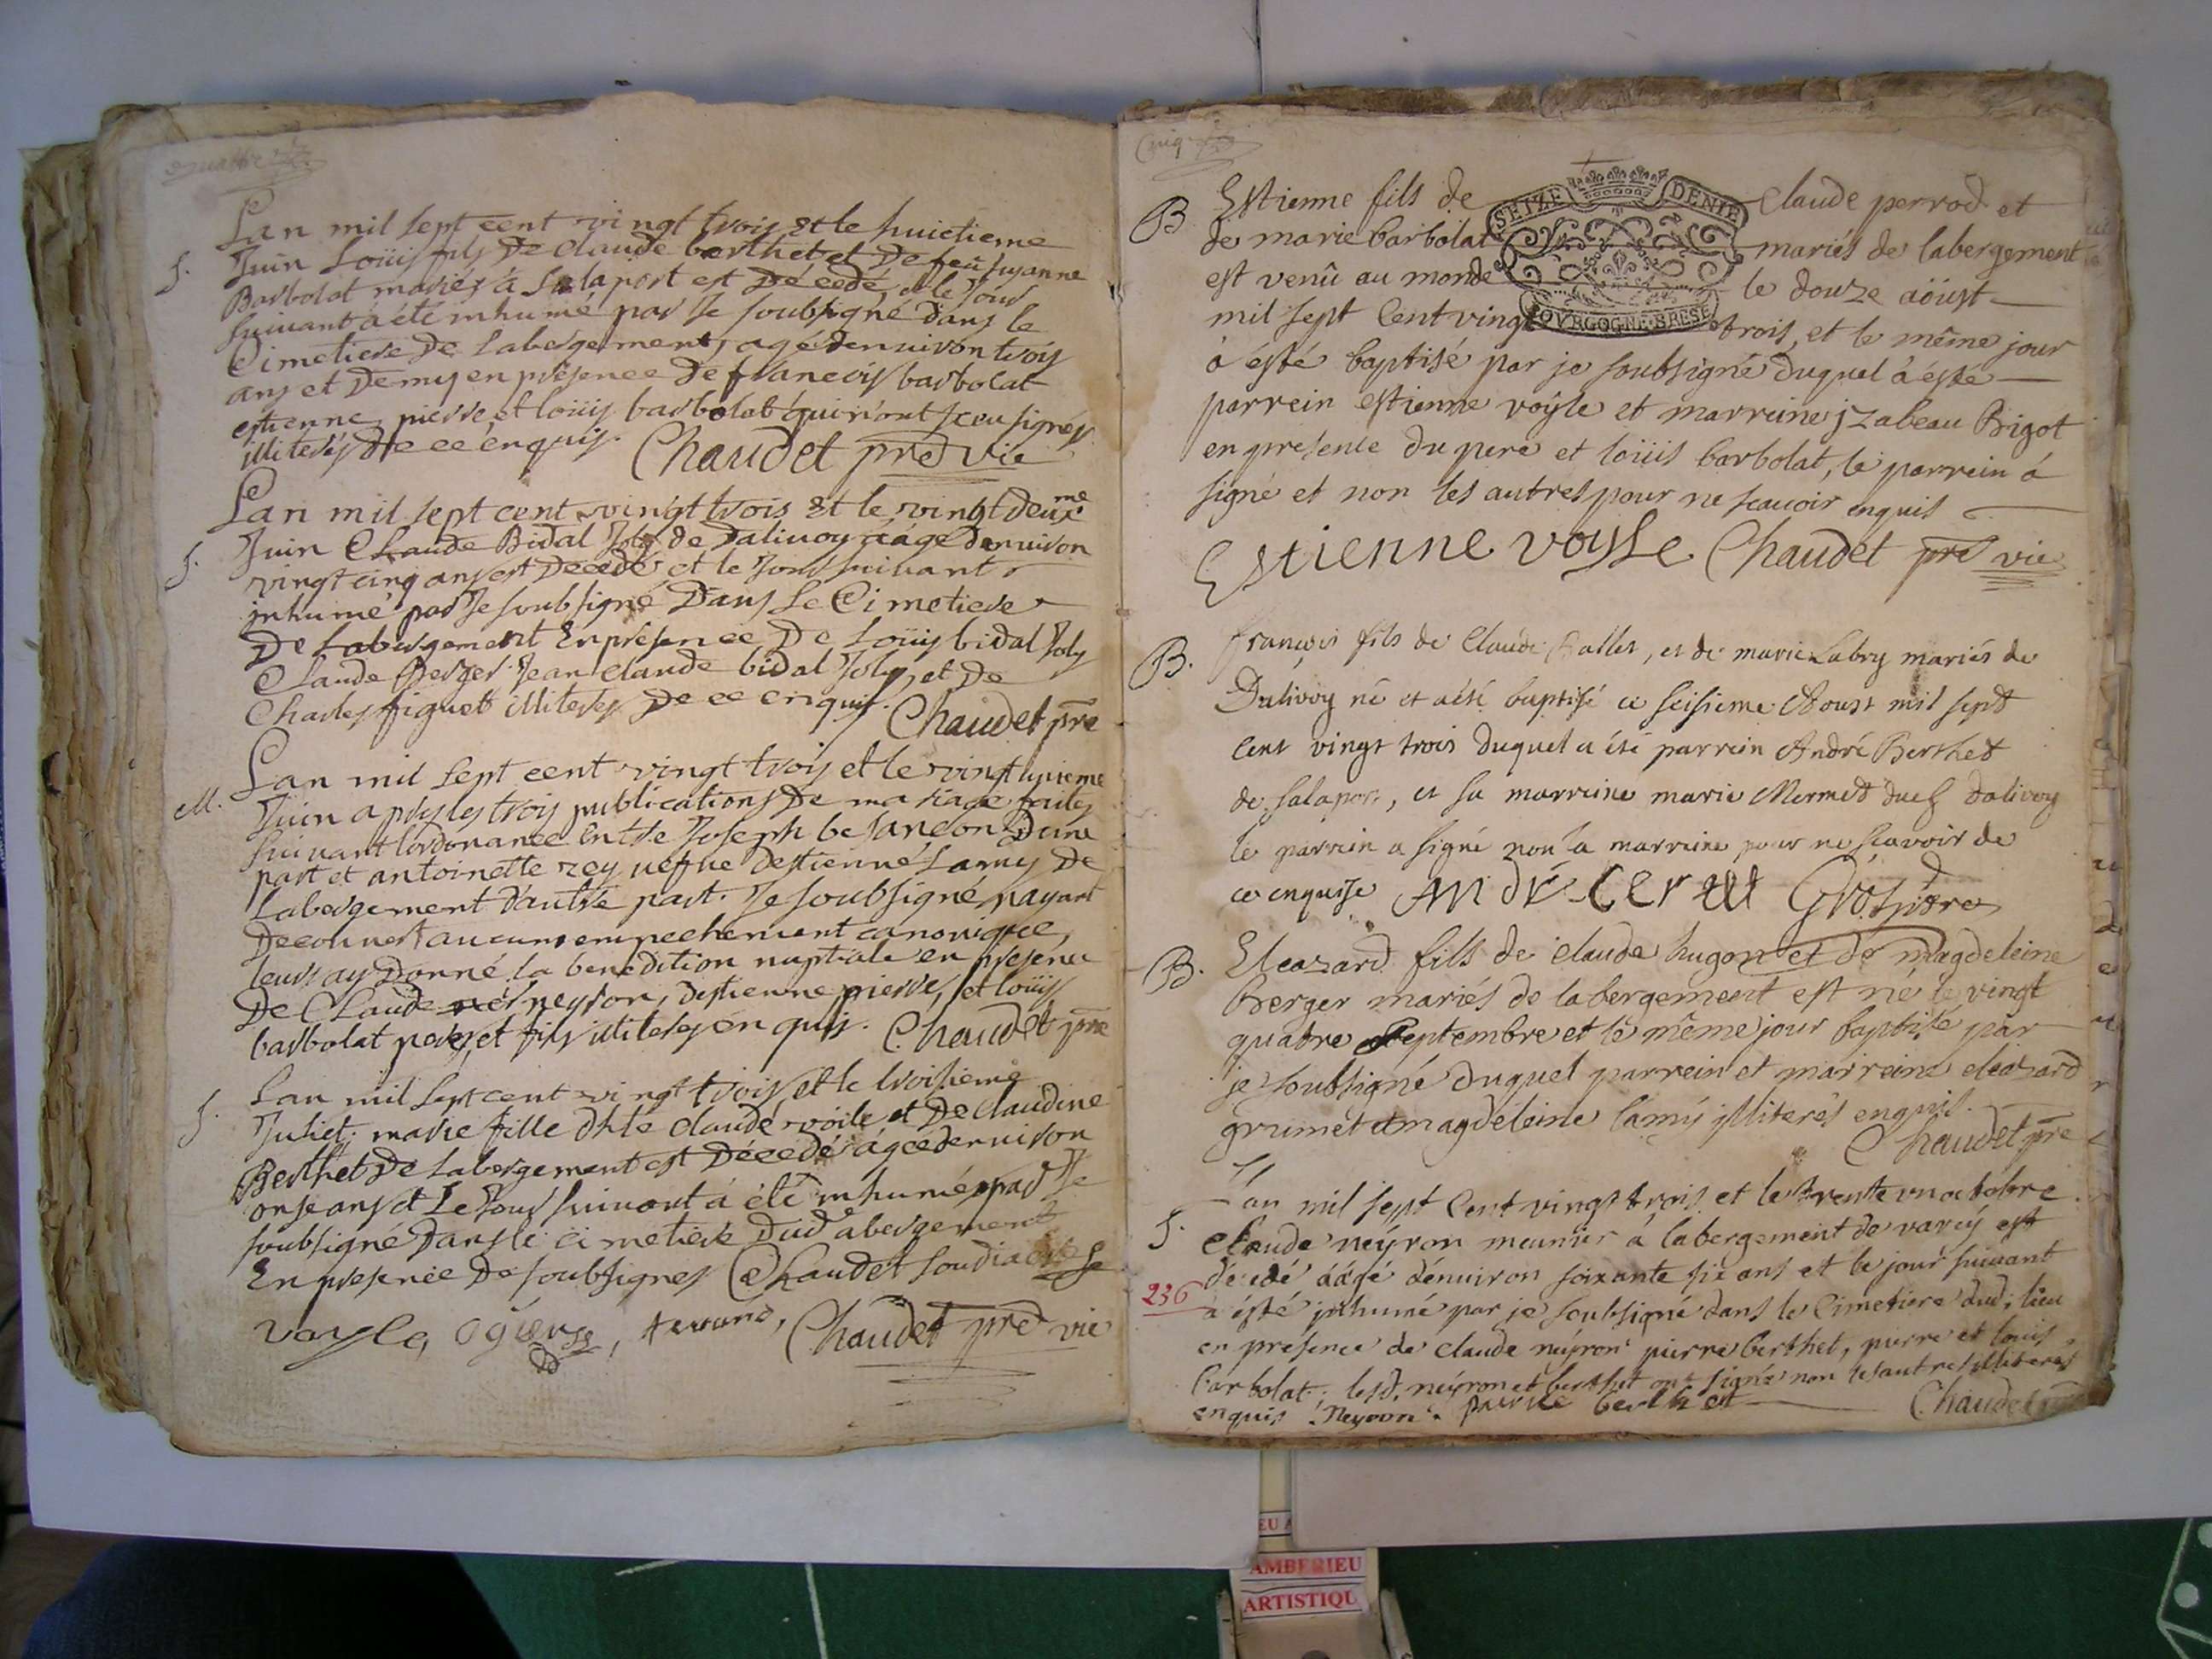 quatre
Lan mil sept cent vingt trois et le huictieme
S. Juin Loüis fils De claude berthet et De feu susanne
Barbolat mariés à Salaport est Décedé, et le Jour
suivant a été inhumé par Je soubsigné Dans le
Cimetiere De Labergement, agé denuiron trois
ans et Demy en présence De francois barbolat
estienne, pierre, et loüis barbolat qui n'ont sceu signer
illiterés De ce enquis. Chaudet pre vic
Lan mil sept cent vingt trois et le vingt deuxme
S. Juin Claude Bidal Joly de Dalivoy áágé Denuiron
vingt cinq ans est Décedé et le Jour suivant
inhumé par Je soubsigné Dans Le Cimetiere
De Labergement En présence De Loüis bidal Joly
Claude Berger Jean claude bidal Joly, et De
Charles figuet illiterés De ce enquis. Chaudet pre
Lan mil sept cent vingt trois et le vingt
M. Juin apres les trois publications De mariage faites
suivant lordonance Entre Joseph besançon Dune
part et antoinette rey uefue Destienne Lamy De
Labergement d'autre part. Je soubsigné nayant
Decouvert aucuns empechement canonique,
leurs ay Donné la benediction nuptiale en présence
De Claude neyron, Destienne pierre, et loüis
barbolat pere, et fils illiterés enquis. Chaudet pre
Lan mil sept cent vingt trois et le troisieme
S. Juliet. marie fille dhte claude voile, et De Claudine
Berthet De Labergement est Décedé agée denuiron
onse ans et Le Jour suivant á été inhumé par Je
soubsigné Dans le cimetiere Dud abergement
En présence De soubsignes Chaudet soudiacre
voyle, ogierse, terrand, Chaudet pre vic
Cinq
B. Estienne fils de SEIZE DENIE Claude perrod et
de marie barbolat mariés de labergement
est venû au monde le douze aöust
mil sept Cent vingt BOVRGOGNE BRESE trois, et le même jour
à ésté baptisé par je soubsigné duquel à ésté
parrein estienne voÿle et marreine jzabeau Brigot
en presente du pere et loüis barbolat, le parrein á
signé et non les autres pour ne scavoir enquis
Estienne voyle Chaudet pre vic
B. François fils de Claude Ballet, et de marie Labry mariés de
Dalivoy né et a été baptisé ce seisieme Aoust mil sept
Cent vingt trois duquel a été parrein André Berthet
de salaport, et sa marreine marie Mermet dud dalivoy
le parrein a signé non la marreine pour ne scavoir de
ce enquise André Grospidre
B. Eleazard fils de claude hugon et de magdeleine
Berger mariés de labergement est né le vingt
quatre septembre et le même jour baptisé par
je soubsigné duquel parrein et marreine eleasard
grumet et magdeleine lamÿ illiterés enquis.
Chaudet pre
Lan mil sept Cent vingt trois et le trente un octobre
S. Claude neÿron meunier à labergement de vareÿ est
décedé áágé dénuiron soixante six ans et le jour suivant
236 a ésté inhumé par je soubsigné dans le Cimetiere dud. lieu
en presence de claude neÿron pierre berthet, pierre et louis
barbolat; lesd. neÿron et berthet ont signés non les autres illiterés
enquis Neyron pierre berthet Chaudet
EU A
AMBERIEU
ARTISTIQU